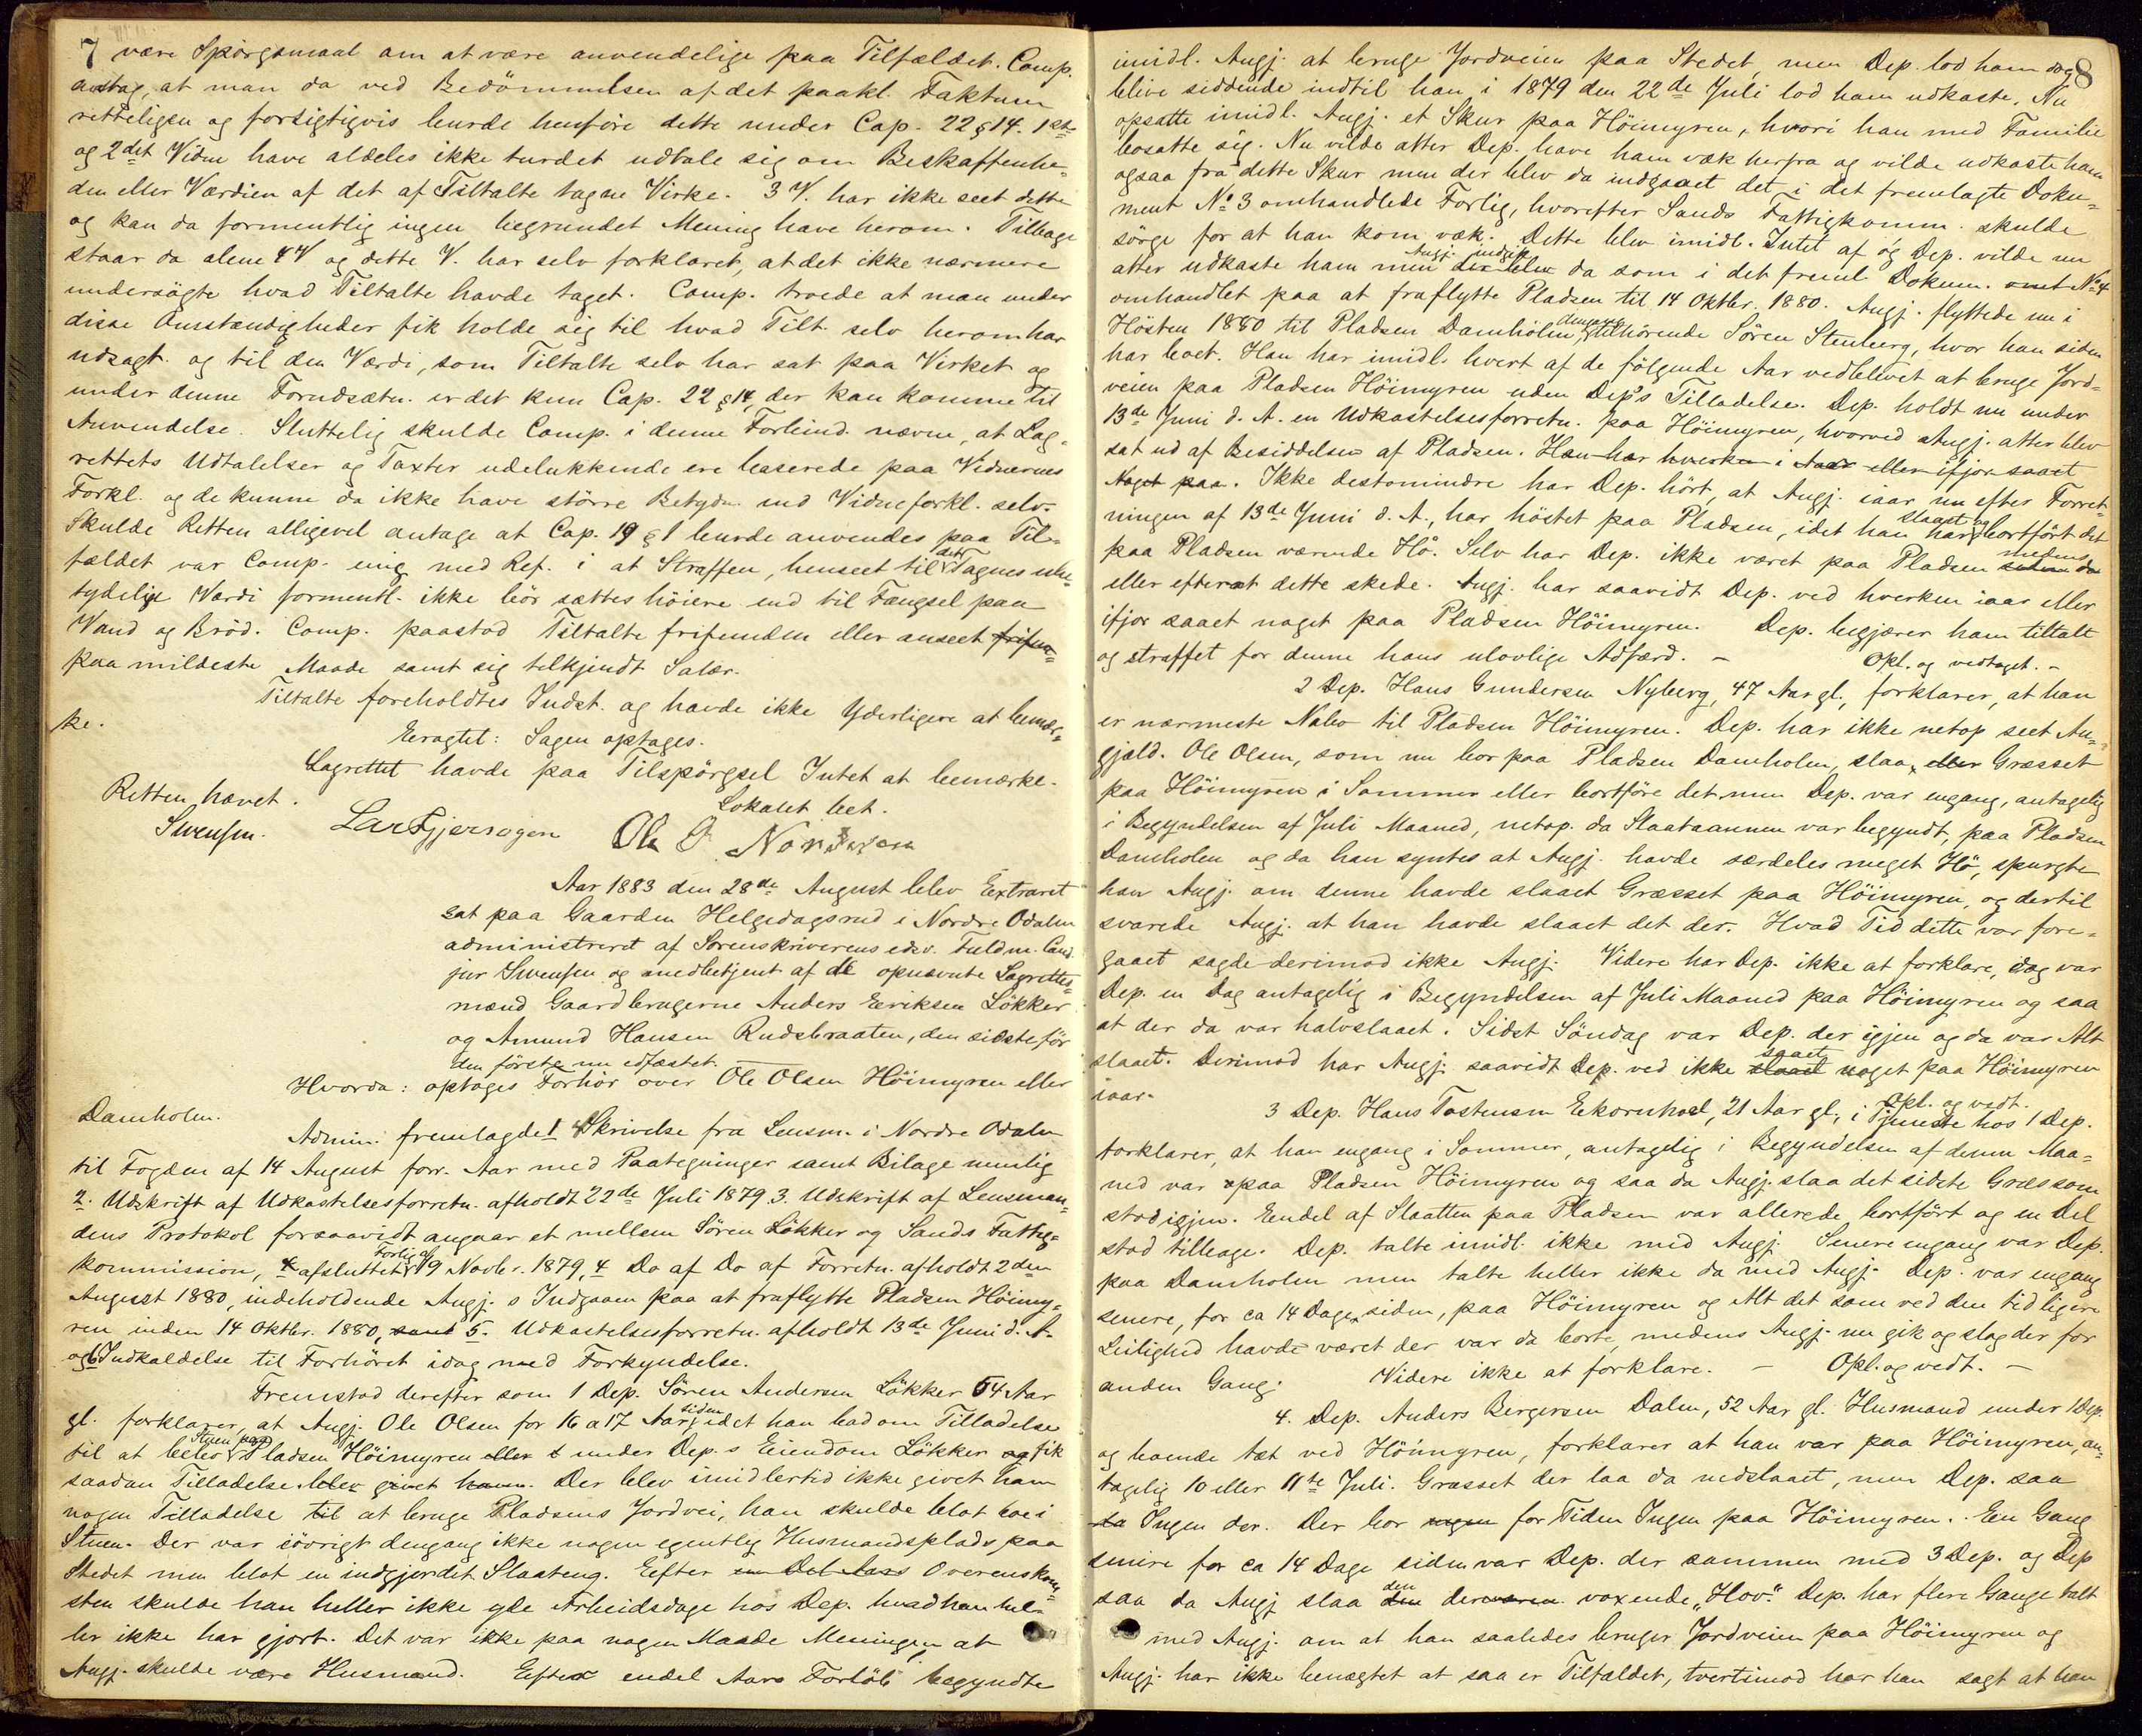 7 være Spörgsmaal om at være anvendelige paa Tilfældet. Comp.
antog, at man da ved Bedömmelsen af det paakl. Faktum
retteligen og forsigtigvis burde henföre dette under Cap. 22 § 14. 1ste
og 2det Vidne have aldeles ikke turdet udtale sig om Beskaffenhe-
den eller Værdien af det af Tiltalte tagne Virke. 3 V. har ikke seet dette
og kan da formentlig ingen begrundet Mening have herom. Tilbage
staar da alene 4 V og dette V. har selv forklaret, at det ikke nærmere
undersögte hvad Tiltalte havde taget. Comp. troede at man under
disse Omstændigheder fik holde sig til hvad Tilt. selv herom har
udsagt og til den Værdi, som Tiltalte selv har sat paa Virket og
under denne Forudsætn. er det kun Cap. 22 § 14, der kan komme til
Anvendelse. Sluttelig skulde Comp. i denne Forbind. nævne, at Lag-
rettets Udtalelser og Taxter udelukkende ere baserede paa Vidnernes
Forkl. og de kunne da ikke have större Betydn. end Vidneforkl. selv.
Skulde Retten alligevel antage at Cap. 19 § 1 burde anvendes paa Til-
fældet var Comp. enig med Ref. i at Straffen, henseet til det Tagnes ube-
tydelige Værdi formentl. ikke bör sættes höiere end til Fængsel paa
Vand og Bröd. Comp. paastod Tiltalte frifunden eller anseet frifun-
paa mildeste Maade samt sig tilkjendt Salær.
Tiltalte foreholdtes Indst. og havde ikke Yderligere at bemær-
ke.
Eragtet: Sagen optages.
Lagrettet havde paa Tilspörgsel Intet at bemærke.
Retten hævet.
Lokalet bet.
Svensen.
Ole
Aar 1883 den 28de August blev Extraret
sat paa Gaarden Helgedagsrud i Nordre Odalen
administreret af Sorenskriverens edsv. Fuldm. Cand.
jur Svensen og medbetjent af de opnævnte Lagrettes-
mænd Gaardbrugerne Anders Eeriksen Lökker
og Amund Hansen Rudsbraaten, den sidste för
den förste nu edfæstet.
Hvorda: optoges Forhör over Ole Olsen Höimyren eller
Damholm.
Admin. fremlagde 1 Skrivelse fra Lensm. i Nordre Odalen
til Fogden af 14 August forr. Aar med Paategninger samt Bilage nemlig
2. Udskrift af Udkastelsesforretn. afholdt 22de Juli 1879. 3. Udskrift af Lensman-
dens Protokol forsaavidt angaar et mellem Sören Lökker og Sands Fattig-
kommission, afsluttet Forlig af 19 Novbr. 1879, 4 Do af Do af Forretn. afholdt 2den
August 1880, indeholdende Angj.s Indgaaen paa at fraflytte Pladsen Höimy-
ren inden 14 Oktbr. 1880, samt 5. Udkastelsesforretn. afholdt 13de Juni d. A.
og 6 Indkaldelse til Forhöret idag med Forkyndelse.
Fremstod derefter som 1 Dep. Sören Andersen Lökker 54 Aar
gl. forklarer, at Angj. Ole Olsen for 16 a 17 Aar siden, idet han bad om Tilladelse
til at beboe Stuen paa Pladsen Höimyren eller t under Dep.s Eiendom Lökker og fik
saadan Tilladelse blev givet ham. Der blev imidlertid ikke givet ham
nogen Tilladelse til at bruge Pladsens Jordvei, han skulde blot boe i
Stuen. Der var iövrigt dengang ikke nogen egentlig Husmandsplads paa
Stedet men blot en indgjerdet Slaateng. Eefter en Del Aars Overenskom-
sten skulde han heller ikke yde Arbeidsdage hos Dep. hvad han hel-
ler ikke har gjort. Det var ikke paa nogen Maade Meningen, at
Angj. skulde være Husmand. Efter endel Aars Forlöb begyndte
8
imidl. Angj. at bruge Jordveien paa Stedet, men Dep. lod ham dog
blive siddende indtil han i 1879 den 22de Juli lod ham udkaste. Nu
opsatte imidl. Angj. et Skur paa Höimyren, hvori han med Familie
bosatte sig. Nu vilde atter Dep. have ham væk herfra og vilde udkaste ham
ogsaa fra dette Skur men der blev da indgaaet det i det fremlagte Doku-
ment No 3 omhandlede Forlig, hvorefter Sands Fattigkomm. skulde
sörge for at han kom væk. Dette blev imidl. Intet af og Dep. vilde nu
atter udkaste ham men Angj. indgik der blev da som i det freml Dokum. No 4
omhandlet paa at fraflytte Pladsen til 14 Oktbr. 1880. Angj. flyttede nu i
Hösten 1880 til Pladsen Damholm, dengang tilhörende Sören Stenberg, hvor han siden
har boet. Han har imidl. hvert af de fölgende Aar vedblevet at bruge Jord-
veien paa Pladsen Höimyren uden Dep's Tilladelse. Dep. holdt nu under
13de Juni d. A. en Udkastelsesforretn. paa Höimyren, hvorved Angj. atter blev
sat ud af Besiddelsen af Pladsen. Han har hverken i Aar eller ifjor saaet
Noget paa. Ikke destomindre har Dep. hört, at Angj. iaar nu efter Forret-
ningen af 13de Juni d. A., har höstet paa Pladsen, idet han har slaaet og bortfört det
paa Pladsen værende Hö. Selv har Dep. ikke været paa Pladsen medens
eller efterat dette skede. Angj. har saavidt Dep. ved hverken iaar eller
ifjor saaet noget paa Pladsen Höimyren. Dep. begjærer ham tiltalt
og straffet for denne hans ulovlige Adfærd. – Opl. og vedtaget. –
2 Dep. Hans Gundersen Nyberg, 47 Aar gl., forklarer, at han
er nærmeste Nabo til Pladsen Höimyren. Dep. har ikke netop seet An-
gjæld. Ole Olsen, som nu bor paa Pladsen Damholen, slaa eller Græsset
paa Höimyren i Sommer eller bortföre det men Dep. var engang, antagelig
i Begyndelsen af Juli Maaned, netop da Slaataannen var begyndt, paa Pladsen
Damholen og da han syntes at Angj. havde særdeles meget Hö, spurgte
han Angj. om denne havde slaaet Græsset paa Höimyren, og dertil
svarede Angj. at han havde slaaet det der. Hvad Tid dette var fore-
gaaet sagde derimod ikke Angj. Videre har Dep. ikke at forklare, dog var
Dep. en Dag antagelig i Begyndelsen af Juli Maaned paa Höimyren og saa
at der da var halvslaaet. Sidst Söndag var Dep. der igjen og da var Alt
slaaet. Derimod har Angj. saavidt Dep. ved ikke slaaet saaet noget paa Höimyren
iaar. Opl. og vedt.
3 Dep. Hans Tostensen Eekornhoel, 21 Aar gl., i Tjeneste hos 1 Dep.
forklarer, at han engang i Sommer, antagelig i Begyndelsen af denne Maa-
ned var paa Pladsen Höimyren og saa da Angj. slaa det sidste Græs som
stod igjen. Eendel af Slaatten paa Pladsen var allerede bortfört og en Del
stod tilbage. Dep. talte imidl. ikke med Angj. Senere engang var Dep.
paa Damholen men talte heller ikke da med Angj. Dep. var engang
senere, for ca 14 Dage siden, paa Höimyren og Alt det som ved den tidligere
Leilighed havde været der var da borte, medens Angj. nu gik og slog der for
anden Gang. Videre ikke at forklare. – Opl. og vedt. –
4. Dep. Anders Bergersen Dalen, 52 Aar gl. Husmand under 1 Dep.
og boende tæt ved Höimyren, forklarer at han var paa Höimyren, an-
tagelig 10 eller 11te Juli. Græsset der laa da nedslaaet, men Dep. saa
da Ingen der. Der bor nogen for Tiden Ingen paa Höimyren. En Gang
senere for ca 14 Dage siden var Dep. der sammen med 3 Dep. og Dep
saa da Angj slaa den der voxende „Hov." Dep. har flere Gange talt
med Angj. om at han saaledes bruger Jordveien paa Höimyren og
Angj. har ikke benægtet at saa er Tilfældet, tvertimod har han sagt at han